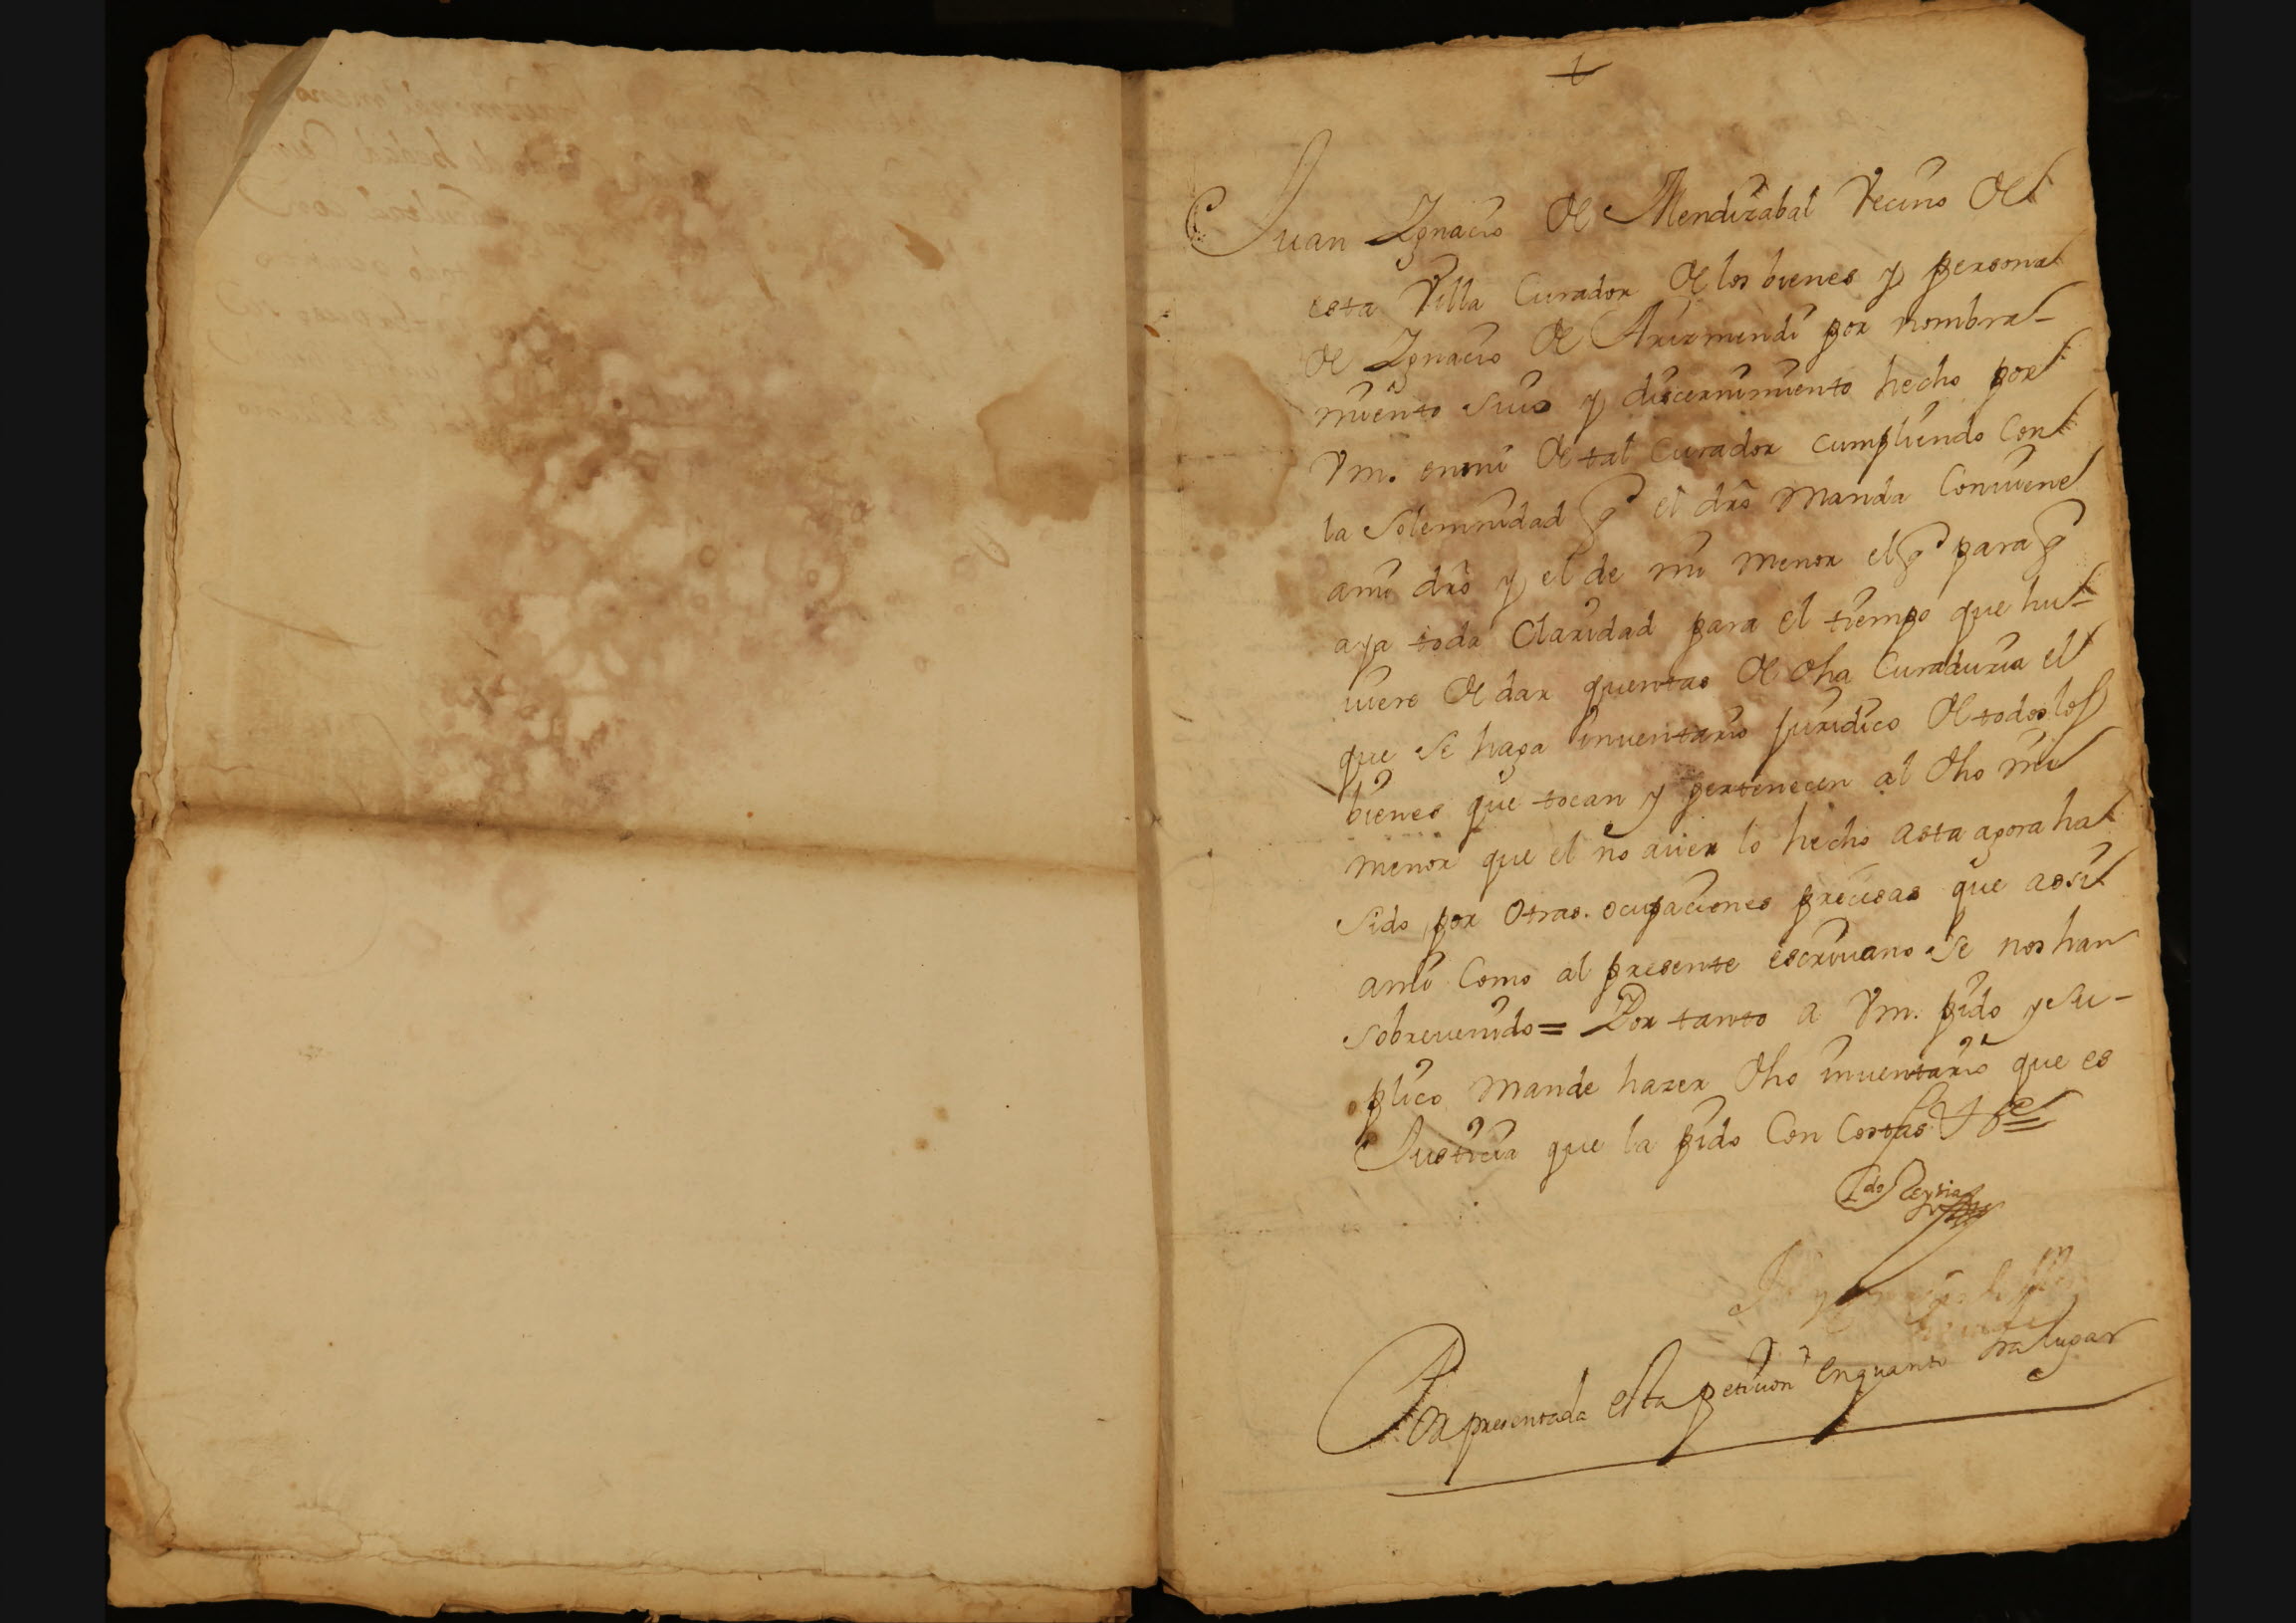 Juan Ignacio de Mendizabal Vecino de
esta Villa Curador de los bienes y persona
de Ignacio de Arizmendi por nombra-
miento suio y discernimiento hecho por
Vm. en mi de tal Curador cumpliendo con
la Solemnidad q̃ el dr̃o manda Conuiene
a mi dr̃o y el de mi menor el q̃ para q̃
aya toda Claridad para el tiempo que hu-
uiere de dar quentas de dha Curaduria el
que se haga inuentario juridico de todos los
bienes que tocan y pertenecen al dho mi
menor que el no auer lo hecho asta agora ha
sido por otras ocupaciones precisas que assi
a mi Como al presente escriuano se nos han
sobreuenido = Por tanto a Vm. pido y su-
plico mande hazer dho inuentario que es
Justicia que la pido Con Costas &c
Ldo
Por presentada esta peticion en quanto ha lugar